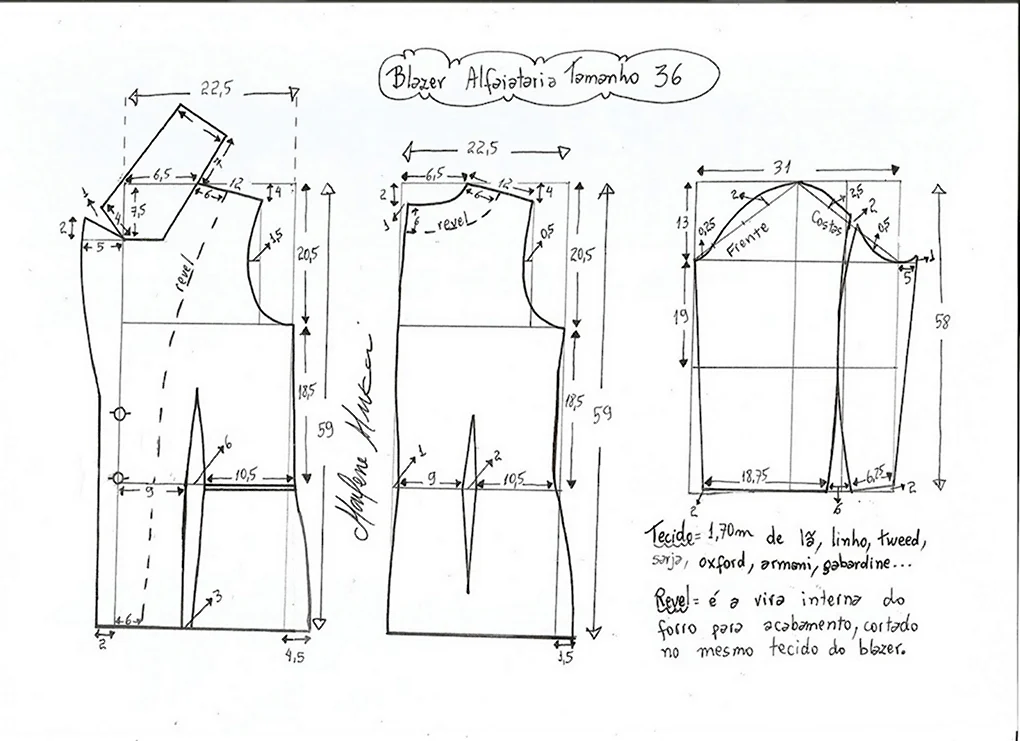 Blazer Alfaiataria Tamanho 36
22,5
6,5
12
4
7,5
6
1
4
2
5
1,5
20,5
revel
18,5
59
6
10,5
9
6
3
2
4,5
22,5
6,5
12
4
2
6
1
6
revel
0,5
20,5
18,5
59
1
2
9
10,5
1,5
Marlene Mukai
31
13
2
2,5
2
0,25
Frente
Costas
0,5
1
5
19
58
18,75
6,75
2
6
2
Tecido= 1,70m de lã, linho, tweed,
sarja, oxford, armani, gabardine...
Revel= é a vira interna do
forro para acabamento, cortado
no mesmo tecido do blazer.